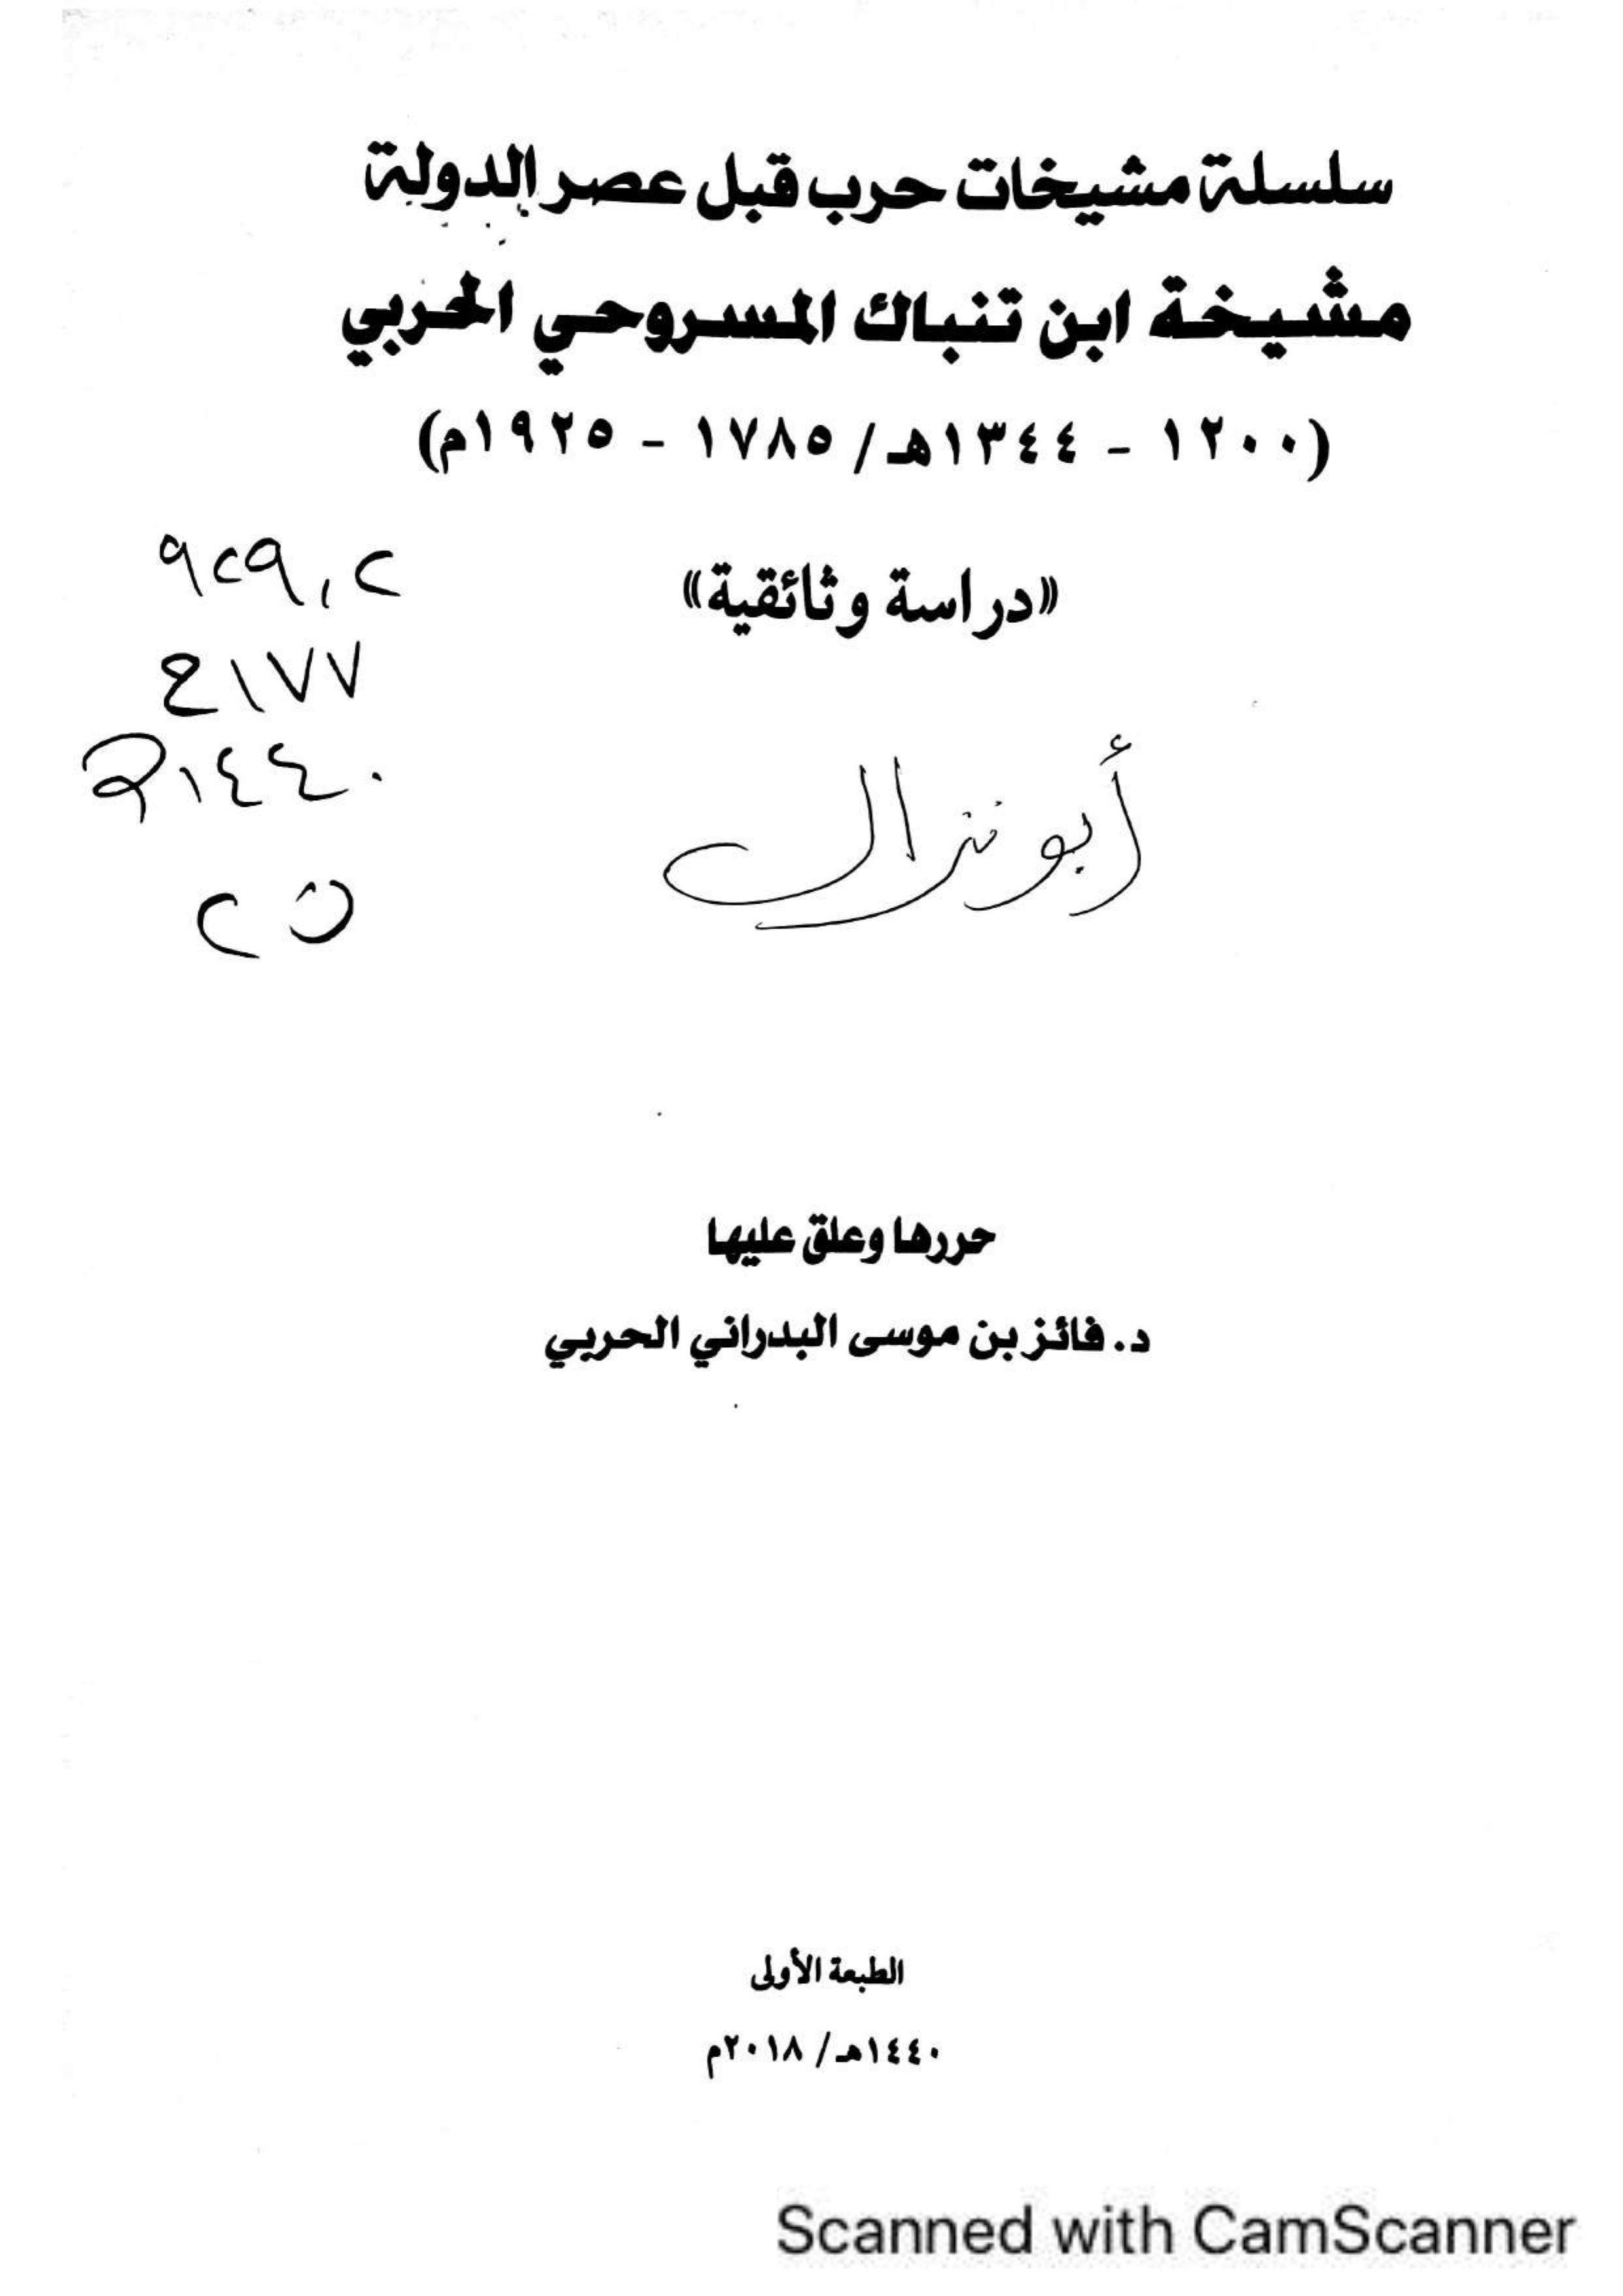 سلسلة مشيخات حرب قبل عصر الدولة
مشيخة ابن تنباك المسروحي الحربي
(١٢٠٠ - ١٣٤٤هـ / ١٧٨٥ - ١٩٢٥م)
«دراسة وثائقية»
٩٢٩,٢
ح١٧٧
م١٤٤٠
ن٢
أبو نزال
حررها وعلق عليها
د. فائز بن موسى البدراني الحربي
الطبعة الأولى
١٤٤٠هـ / ٢٠١٨م
Scanned with CamScanner